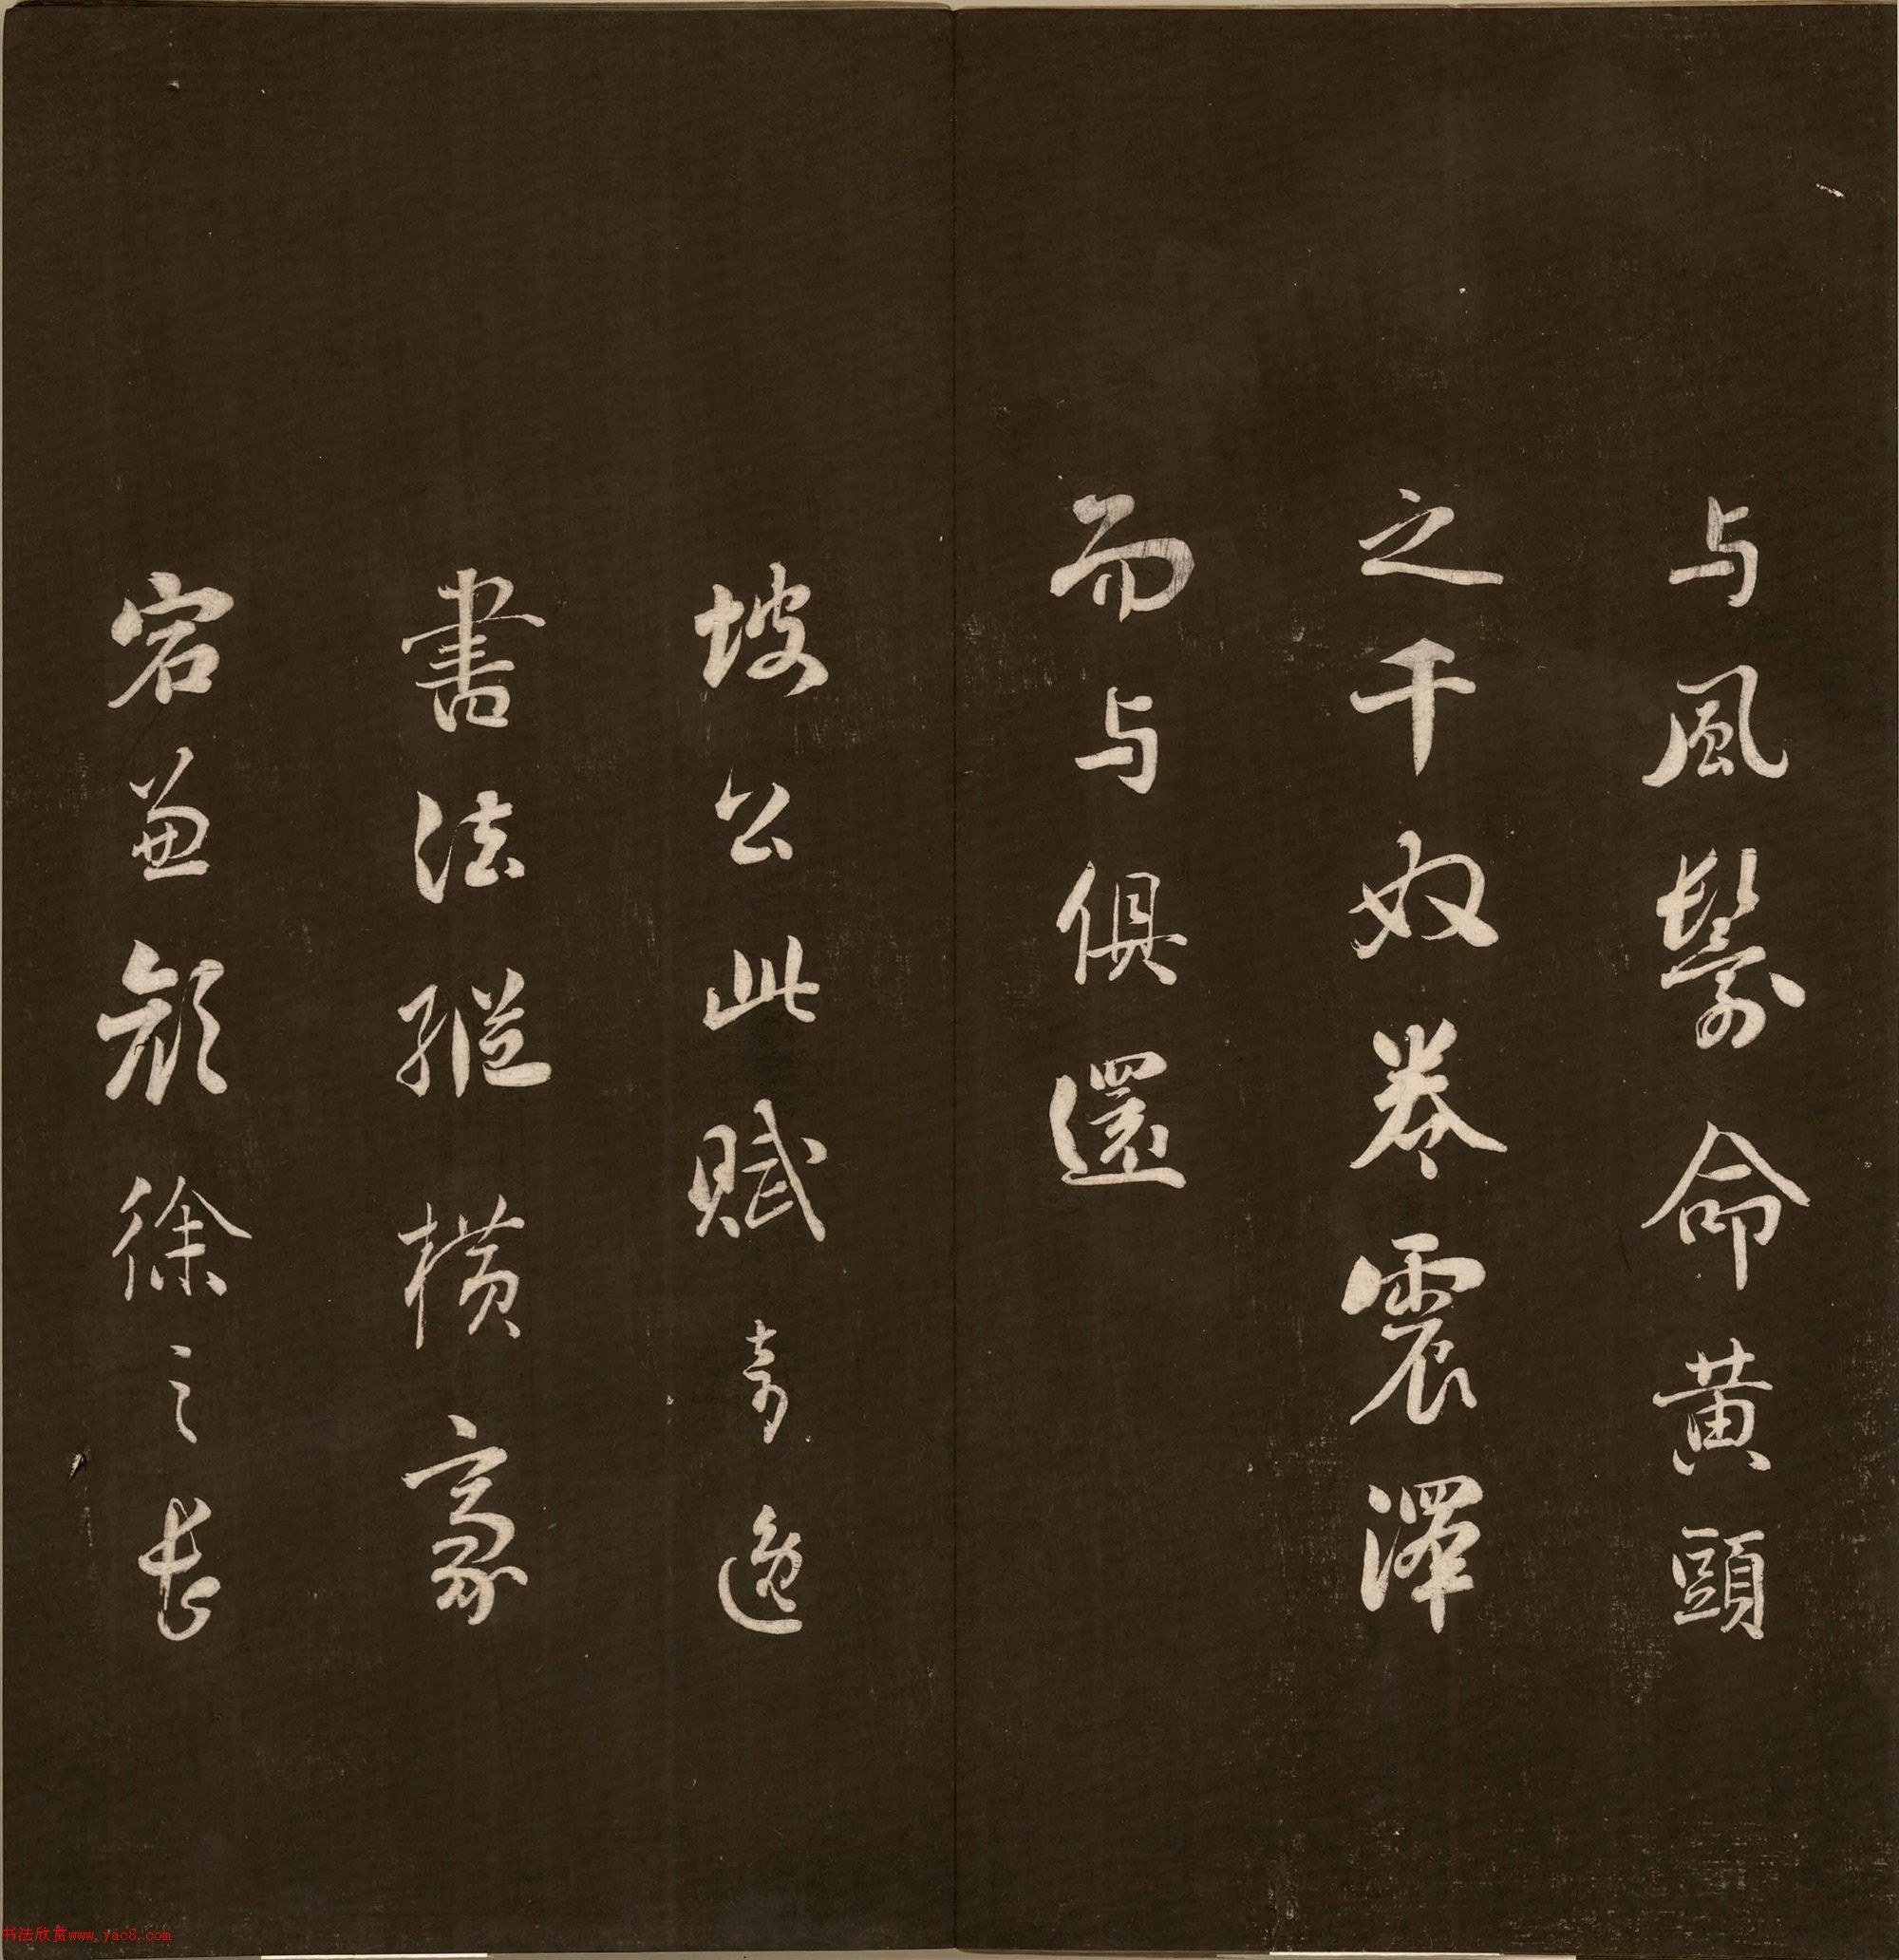 与風鬟命黃頭
之千奴卷震澤
而与俱還
坡公此賦奇逸
書法縱橫豪
宕兼顔徐之長
书法欣赏www.yac8.com